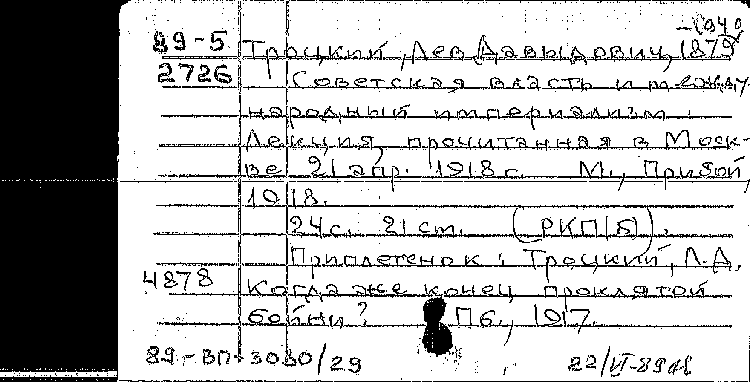 -1940
89-5 Троцкий, Лев Давыдович, 1879
2726 Советская власть и между-
народный империализм.
Лекция, прочитанная в Моск-
ве 21 апр. 1918 г. М., Прибой,
1918.
24 с. 21 см. (РКП(б)).
Приплетен к: Троцкий, Л.Д.
4878 Когда же конец проклятой
бойни? Пб., 1917.
89-ВП-3030/29 22/VI-89